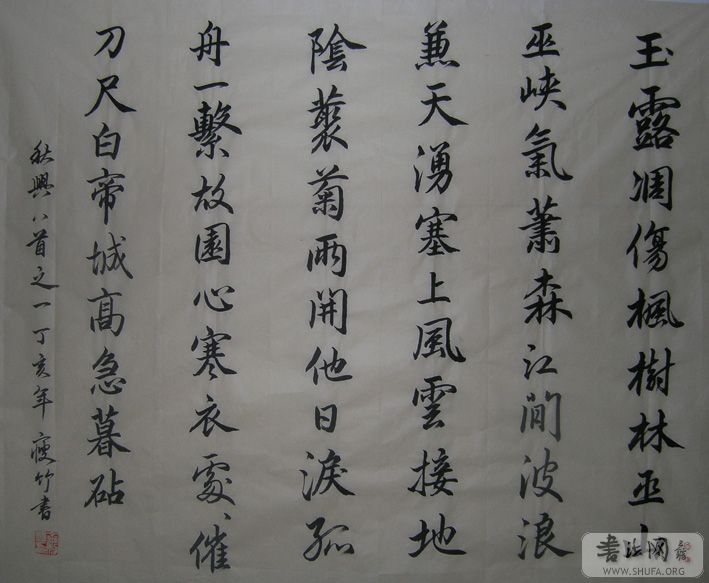 玉露凋傷楓樹林巫山
巫峽氣蕭森江間波浪
兼天湧塞上風雲接地
陰藂菊兩開他日淚孤
舟一繫故園心寒衣處、催
刀尺白帝城高急暮砧
秋興八首之一丁亥年 瘦竹書
書法网
WWW.SHUFA.ORG